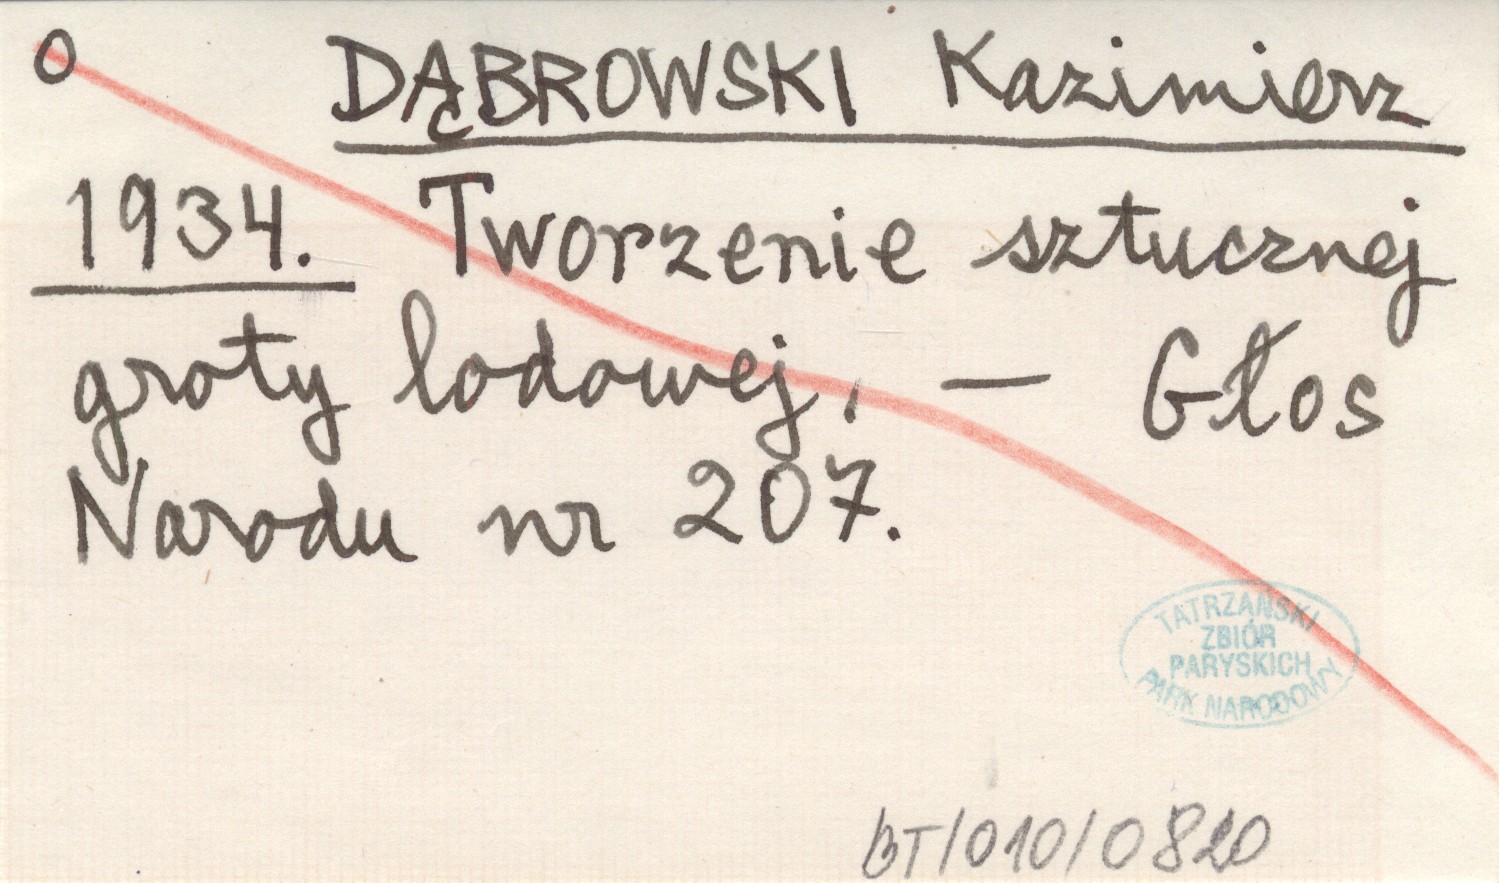 O DĄBROWSKI Kazimierz
1934. Tworzenie sztucznej
groty lodowej, — Głos
Narodu nr 207.
TATRZAŃSKI
ZBIÓR
PARYSKICH
PARK NARODOWY
BT/010/0820